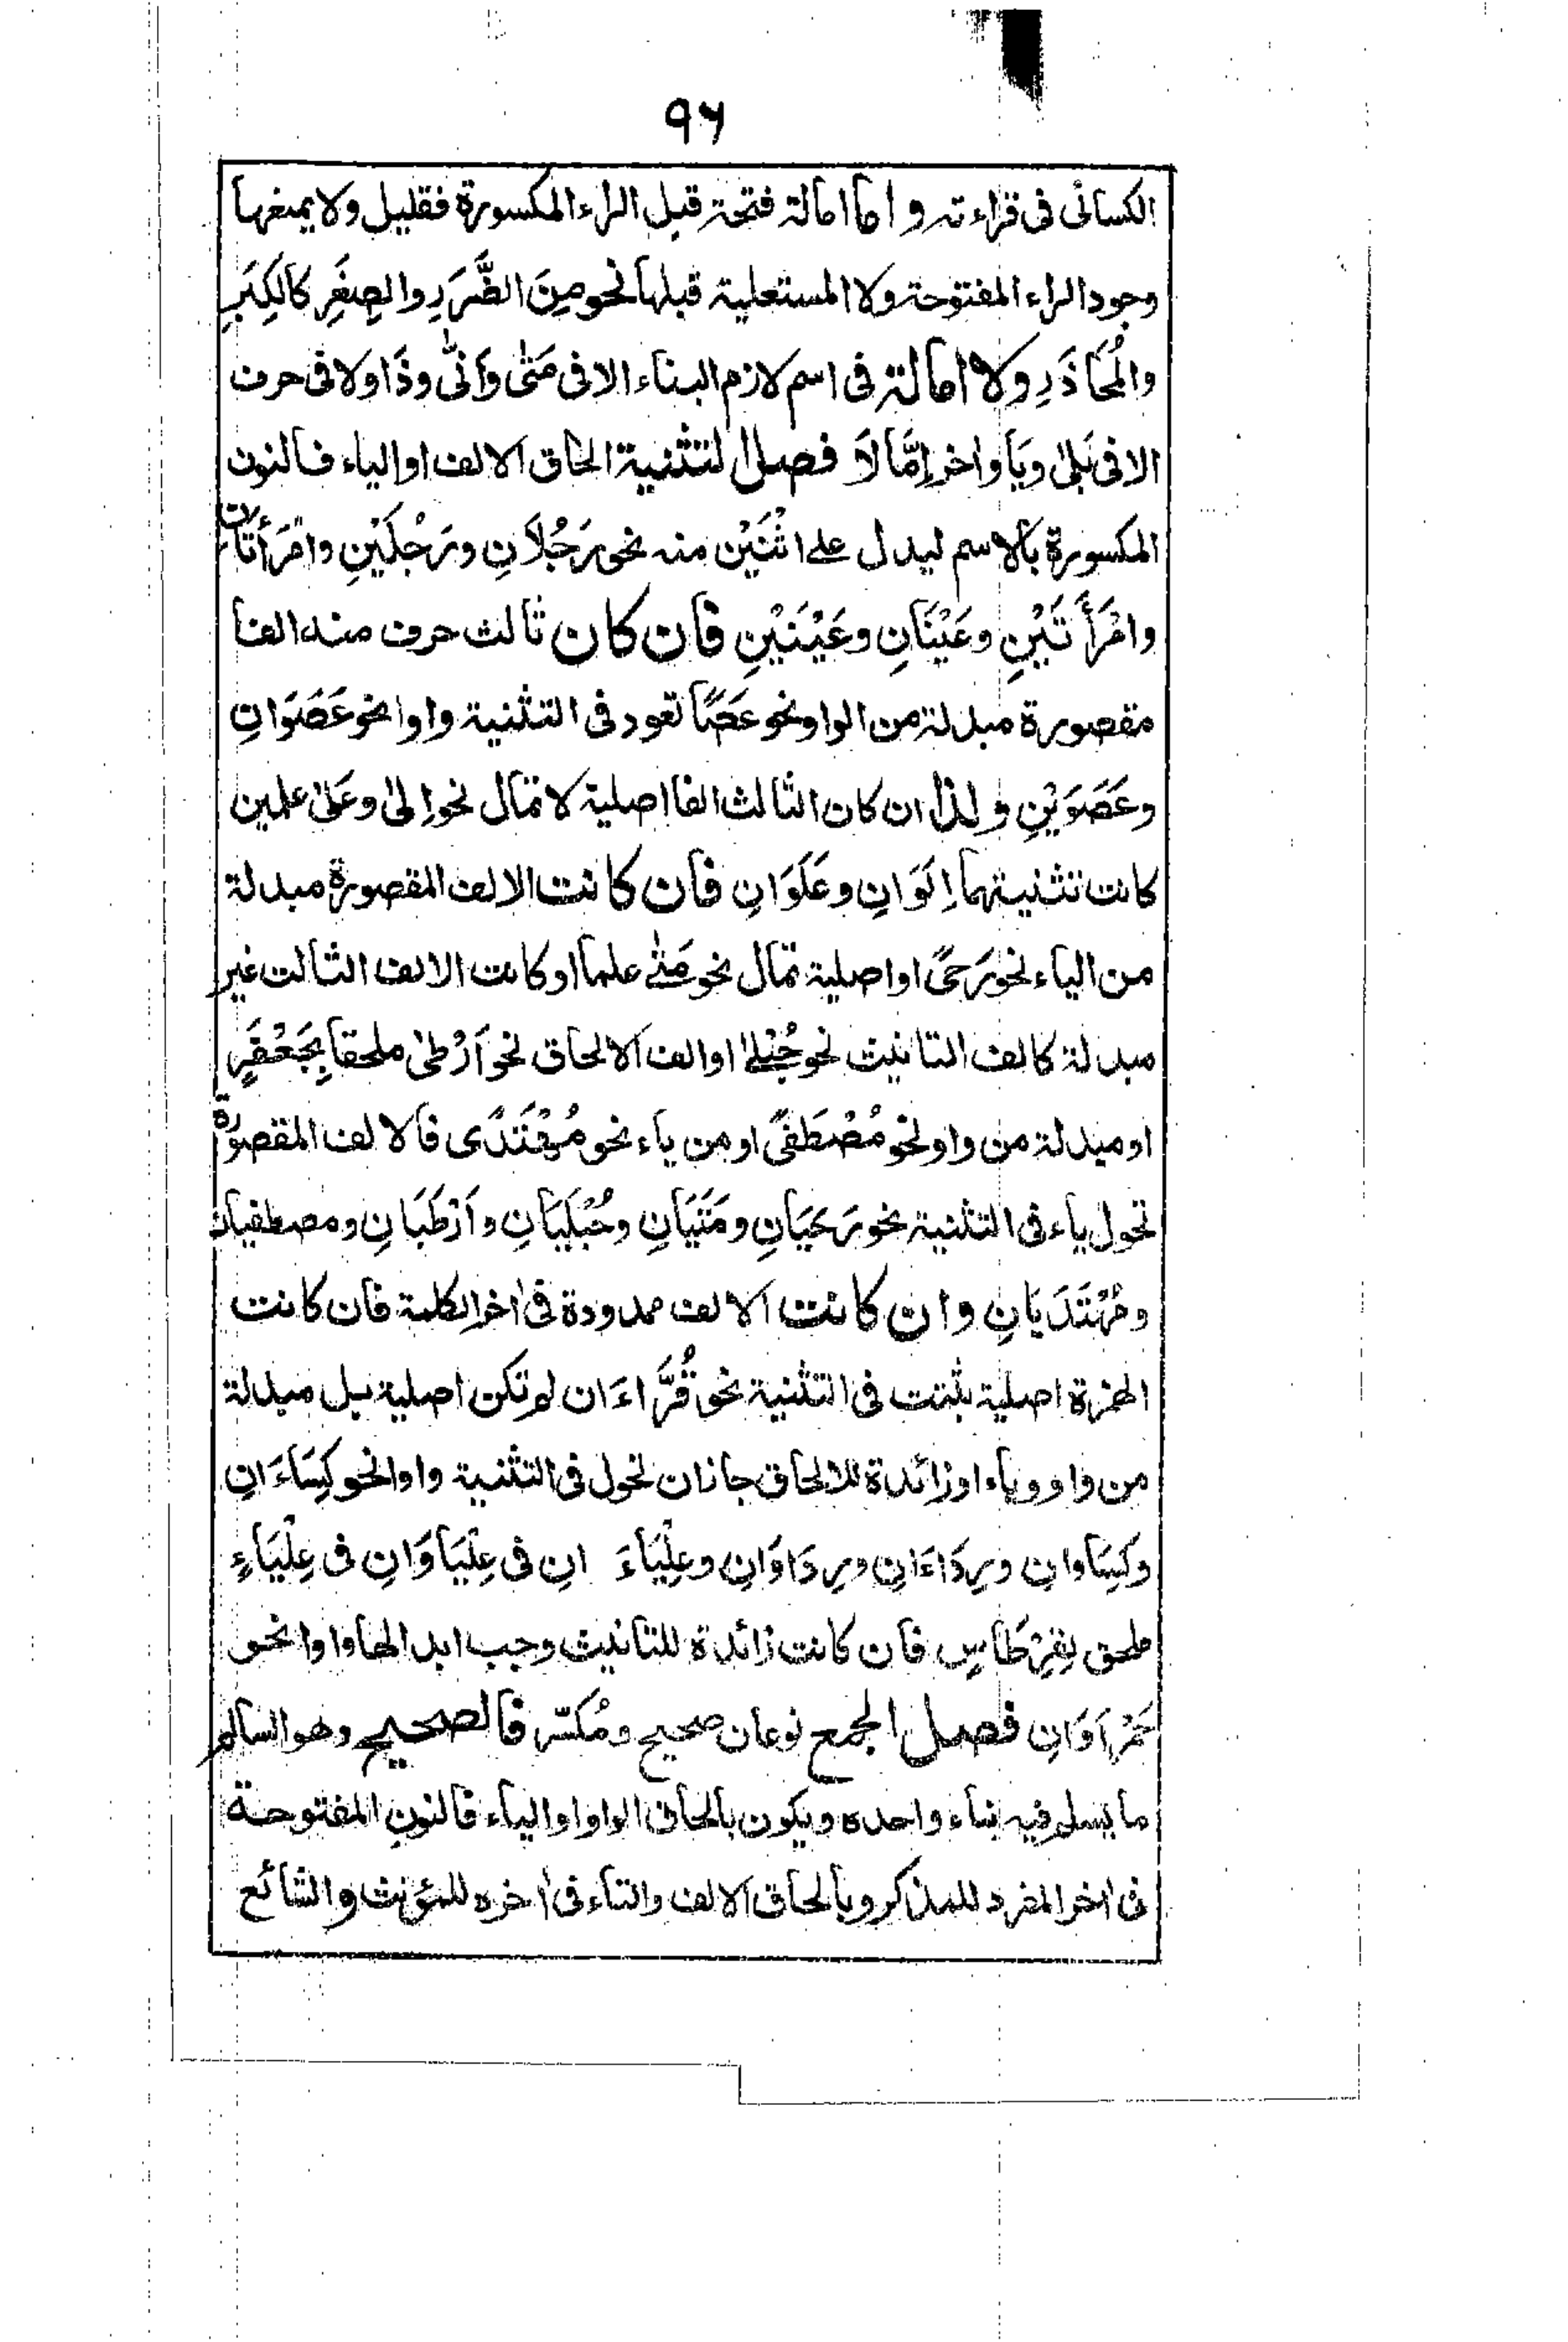 ۹۶
الکسائی فی قراءته و اما امالة فتحة قبل الراء المکسورة فقلیل ولا یمنعها
وجود الراء المفتوحة ولا المستعلیة قبلها نحو مِنَ الضَّرَرِ والصِغَرِ کالکِبَرِ
والمُحَاذَرِ ولا امالة فی اسم لازم البناء الا فی مَتٰی وَاَنّٰی وذَا ولا فی حرف
الا فی بَلٰی ویَا واخر اِمَّا لَا فصل التثنیة الحاق الالف او الیاء فالنون
المکسورة بالاسم لیدل علی اثْنَیْن منه نحو رَجُلَانِ ورَجُلَیْنِ وامْرَأَتَانِ
وامْرَأَتَیْنِ وعَیْنَانِ وعَیْنَیْنِ فان کان ثالث حرف منه الفا
مقصورة مبدلة من الواو نحو عَصًا تعود فی التثنیة واوا نحو عَصَوَانِ
وعَصَوَیْنِ و لذا ان کان الثالث الفا اصلیة لا تمال نحو اِلٰی وعَلٰی علمین
کانت تثنیتهما اِلَوَانِ وعَلَوَانِ فان کانت الالف المقصورة مبدلة
من الیاء نحو رَحیً او اصلیة تمال نحو مَتٰی علما او کانت الالف الثالث غیر
مبدلة کالف التانیث نحو حُبْلٰی او الف الالحاق نحو اَرْطٰی ملحقا بِجَعْفَرٍ
او مبدلة من واو نحو مُصْطَفیً او من یاء نحو مُهْتَدًی فالالف المقصورة
تحول یاء فی التثنیة نحو رَحَیَانِ ومَتَیَانِ وحُبْلَیَانِ واَرْطَیَانِ ومصطفیان
ومُهْتَدَیَانِ وان کانت الالف ممدودة فی اٰخر الکلمة فان کانت
الهمزة اصلیة ثبتت فی التثنیة نحو قُرَّاءَان لم تکن اصلیة بل مبدلة
من واو ویاء او زائدة للالحاق جاز ان تحول فی التثنیة واوا نحو کِسَاءَانِ
وکِسَاوانِ ورِدَاءَانِ ورِدَاوَانِ وعِلْیَاءَ انِ فی عِلْیَاوَانِ فی عِلْیَاءٍ
ملحق بِقِرْطَاسٍ فان کانت زائدة للتانیث وجب ابدالها واوا نحو
حَمْرَاوَانِ فصل الجمع نوعان صحیح ومُکسّر فالصحیح وهو السالم
ما یسلم فیه بناء واحده ویکون بالحاق الواو او الیاء فالنون المفتوحة
فی اٰخر المفرد للمذکر وبالحاق الالف والتاء فی اٰخره للمؤنث والشائع